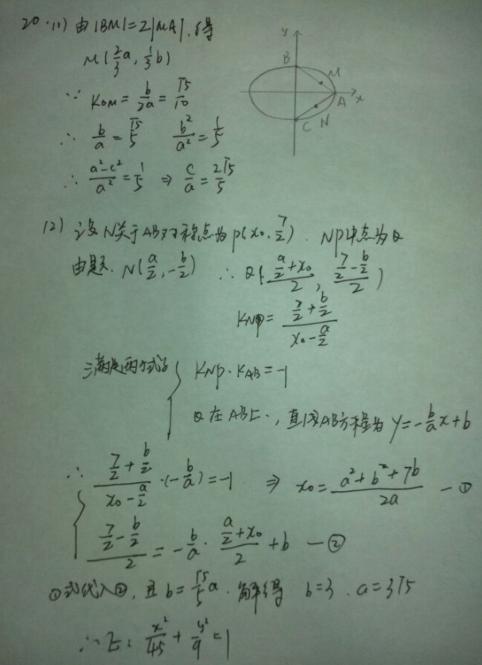 20.(1) 由|BM|=2|MA|,得
M(2/3 a, 1/3 b)
∵ K_OM = b/2a = √5/10
∴ b/a = √5/5  b²/a² = 1/5
∴ (a²-c²)/a² = 1/5 ⇒ c/a = 2√5/5
y
B
M
A x
N
C
(2) 设N关于AB对称点为P(x₀, 7/2). NP中点为Q
由题. N(a/2, -b/2) ∴ Q((a/2+x₀)/2, (7/2-b/2)/2)
K_NP = (7/2+b/2)/(x₀-a/2)
满足两个式子 { K_NP·K_AB = -1
Q在AB上, 直线AB方程为 y = -b/a x + b
∴ { (7/2+b/2)/(x₀-a/2)·(-b/a) = -1 ⇒ x₀ = (a²+b²+7b)/2a —①
(7/2-b/2)/2 = -b/a · (a/2+x₀)/2 + b —②
①式代入②, 且 b = √5/5 a. 解得 b=3. a=3√5
∴ E: x²/45 + y²/9 = 1